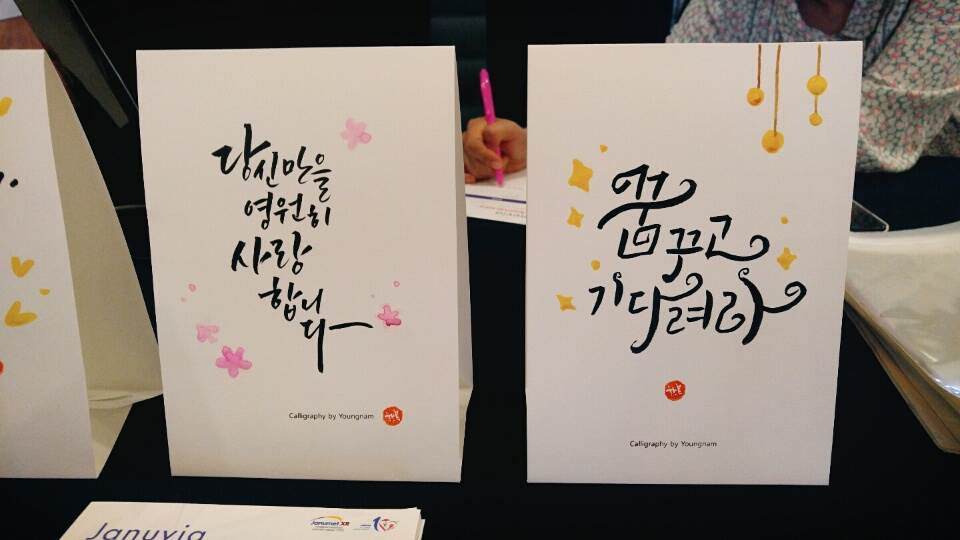 당신만을
영원히
사랑
합니
다
Calligraphy by Youngnam
꿈꾸고
기다려라
Calligraphy by Youngnam
Januvia
Janumet XR